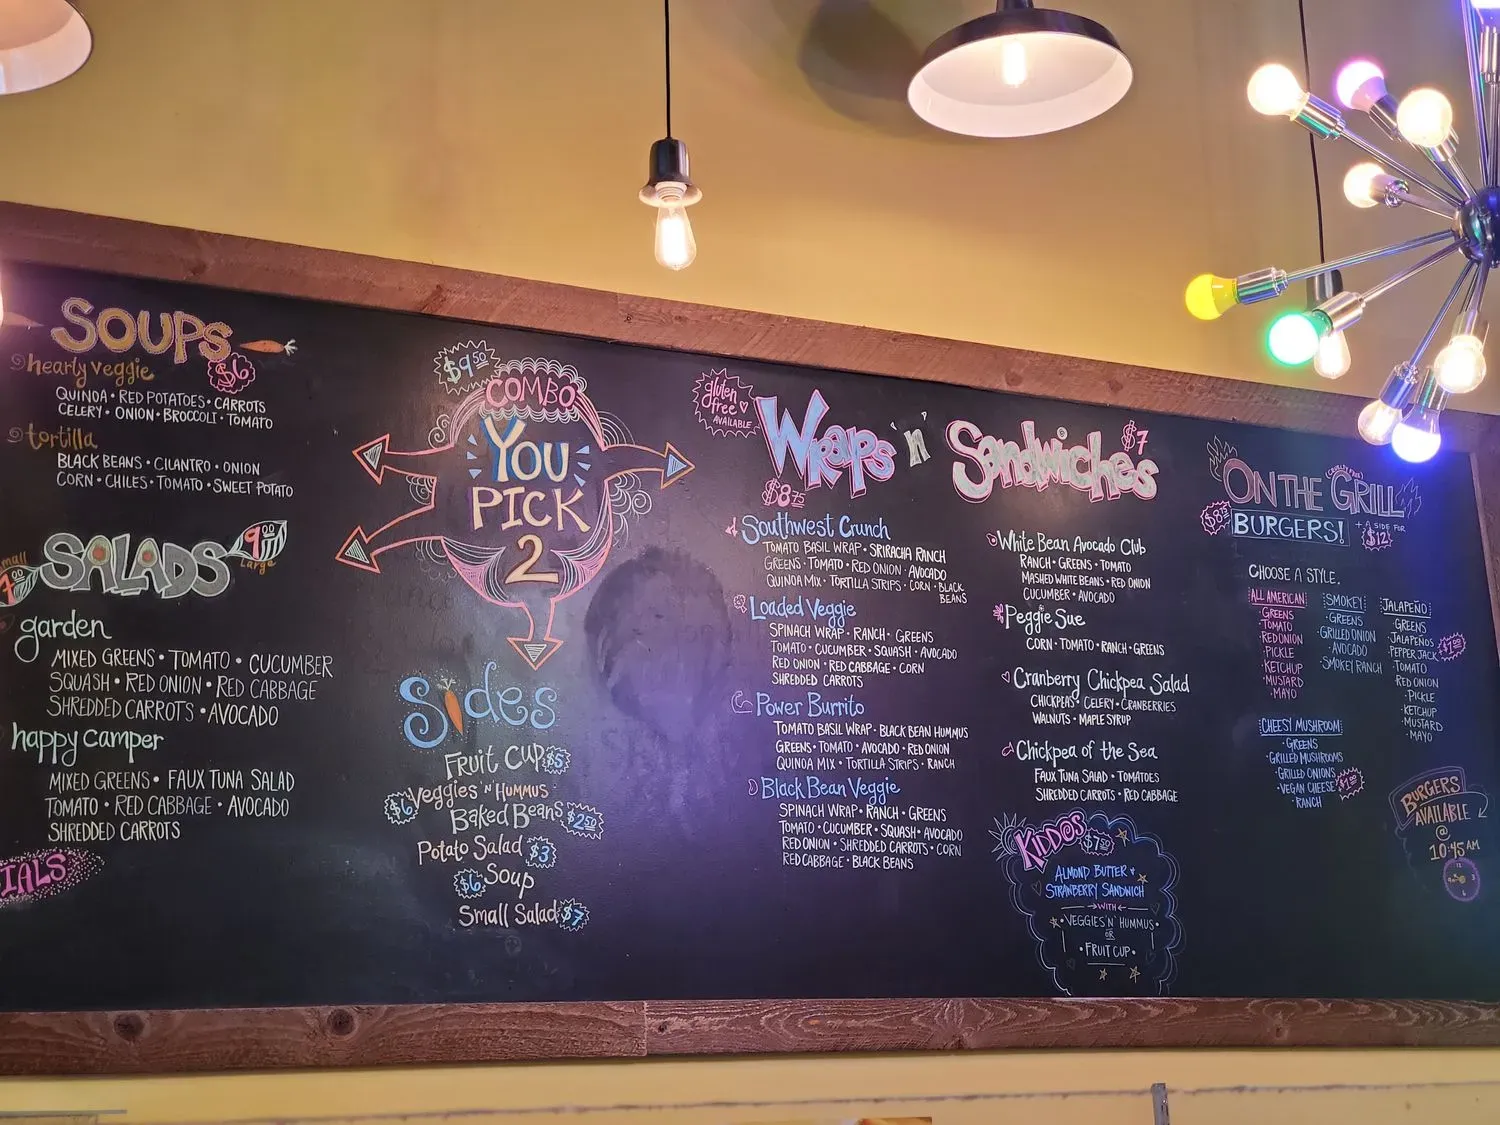 SOUPS
$6
hearty veggie
QUINOA • RED POTATOES • CARROTS
CELERY • ONION • BROCCOLI • TOMATO
tortilla
BLACK BEANS • CILANTRO • ONION
CORN • CHILES • TOMATO • SWEET POTATO
SALADS
small
7.00
9.00
Large
garden
MIXED GREENS • TOMATO • CUCUMBER
SQUASH • RED ONION • RED CABBAGE
SHREDDED CARROTS • AVOCADO
happy camper
MIXED GREENS • FAUX TUNA SALAD
TOMATO • RED CABBAGE • AVOCADO
SHREDDED CARROTS
IALS
$9.50
COMBO
YOU
PICK
2
Sides
Fruit Cup $5
Veggies 'N' Hummus
$6
Baked Beans $2.50
Potato Salad $3
$6 Soup
Small Salad $7
gluten
free
AVAILABLE
Wraps 'n' Sandwiches
$8.75
$7
Southwest Crunch
TOMATO BASIL WRAP • SRIRACHA RANCH
GREENS • TOMATO • RED ONION • AVOCADO
QUINOA MIX • TORTILLA STRIPS • CORN • BLACK
BEANS
Loaded Veggie
SPINACH WRAP • RANCH • GREENS
TOMATO • CUCUMBER • SQUASH • AVOCADO
RED ONION • RED CABBAGE • CORN
SHREDDED CARROTS
Power Burrito
TOMATO BASIL WRAP • BLACK BEAN HUMMUS
GREENS • TOMATO • AVOCADO • RED ONION
QUINOA MIX • TORTILLA STRIPS • RANCH
Black Bean Veggie
SPINACH WRAP • RANCH • GREENS
TOMATO • CUCUMBER • SQUASH • AVOCADO
RED ONION • SHREDDED CARROTS • CORN
RED CABBAGE • BLACK BEANS
White Bean Avocado Club
RANCH • GREENS • TOMATO
MASHED WHITE BEANS • RED ONION
CUCUMBER • AVOCADO
Peggie Sue
CORN • TOMATO • RANCH • GREENS
Cranberry Chickpea Salad
CHICKPEAS • CELERY • CRANBERRIES
WALNUTS • MAPLE SYRUP
Chickpea of the Sea
FAUX TUNA SALAD • TOMATOES
SHREDDED CARROTS • RED CABBAGE
KIDDOS
$7.50
ALMOND BUTTER &
STRAWBERRY SANDWICH
WITH
• VEGGIES 'N' HUMMUS •
OR
• FRUIT CUP •
(CRUELTY FREE)
ON THE GRILL
BURGERS!
+ A SIDE FOR
$12
CHOOSE A STYLE.
ALL AMERICAN
• GREENS
• TOMATO
• RED ONION
• PICKLE
• KETCHUP
• MUSTARD
• MAYO
SMOKEY
• GREENS
• GRILLED ONION
• AVOCADO
• SMOKEY RANCH
JALAPEÑO
• GREENS
• JALAPEÑOS
• PEPPER JACK
$1.00
• TOMATO
• RED ONION
• PICKLE
• KETCHUP
• MUSTARD
• MAYO
CHEESY MUSHROOM
• GREENS
• GRILLED MUSHROOMS
• GRILLED ONIONS
• VEGAN CHEESE
$1.00
• RANCH
BURGERS
AVAILABLE
@
10:45 AM